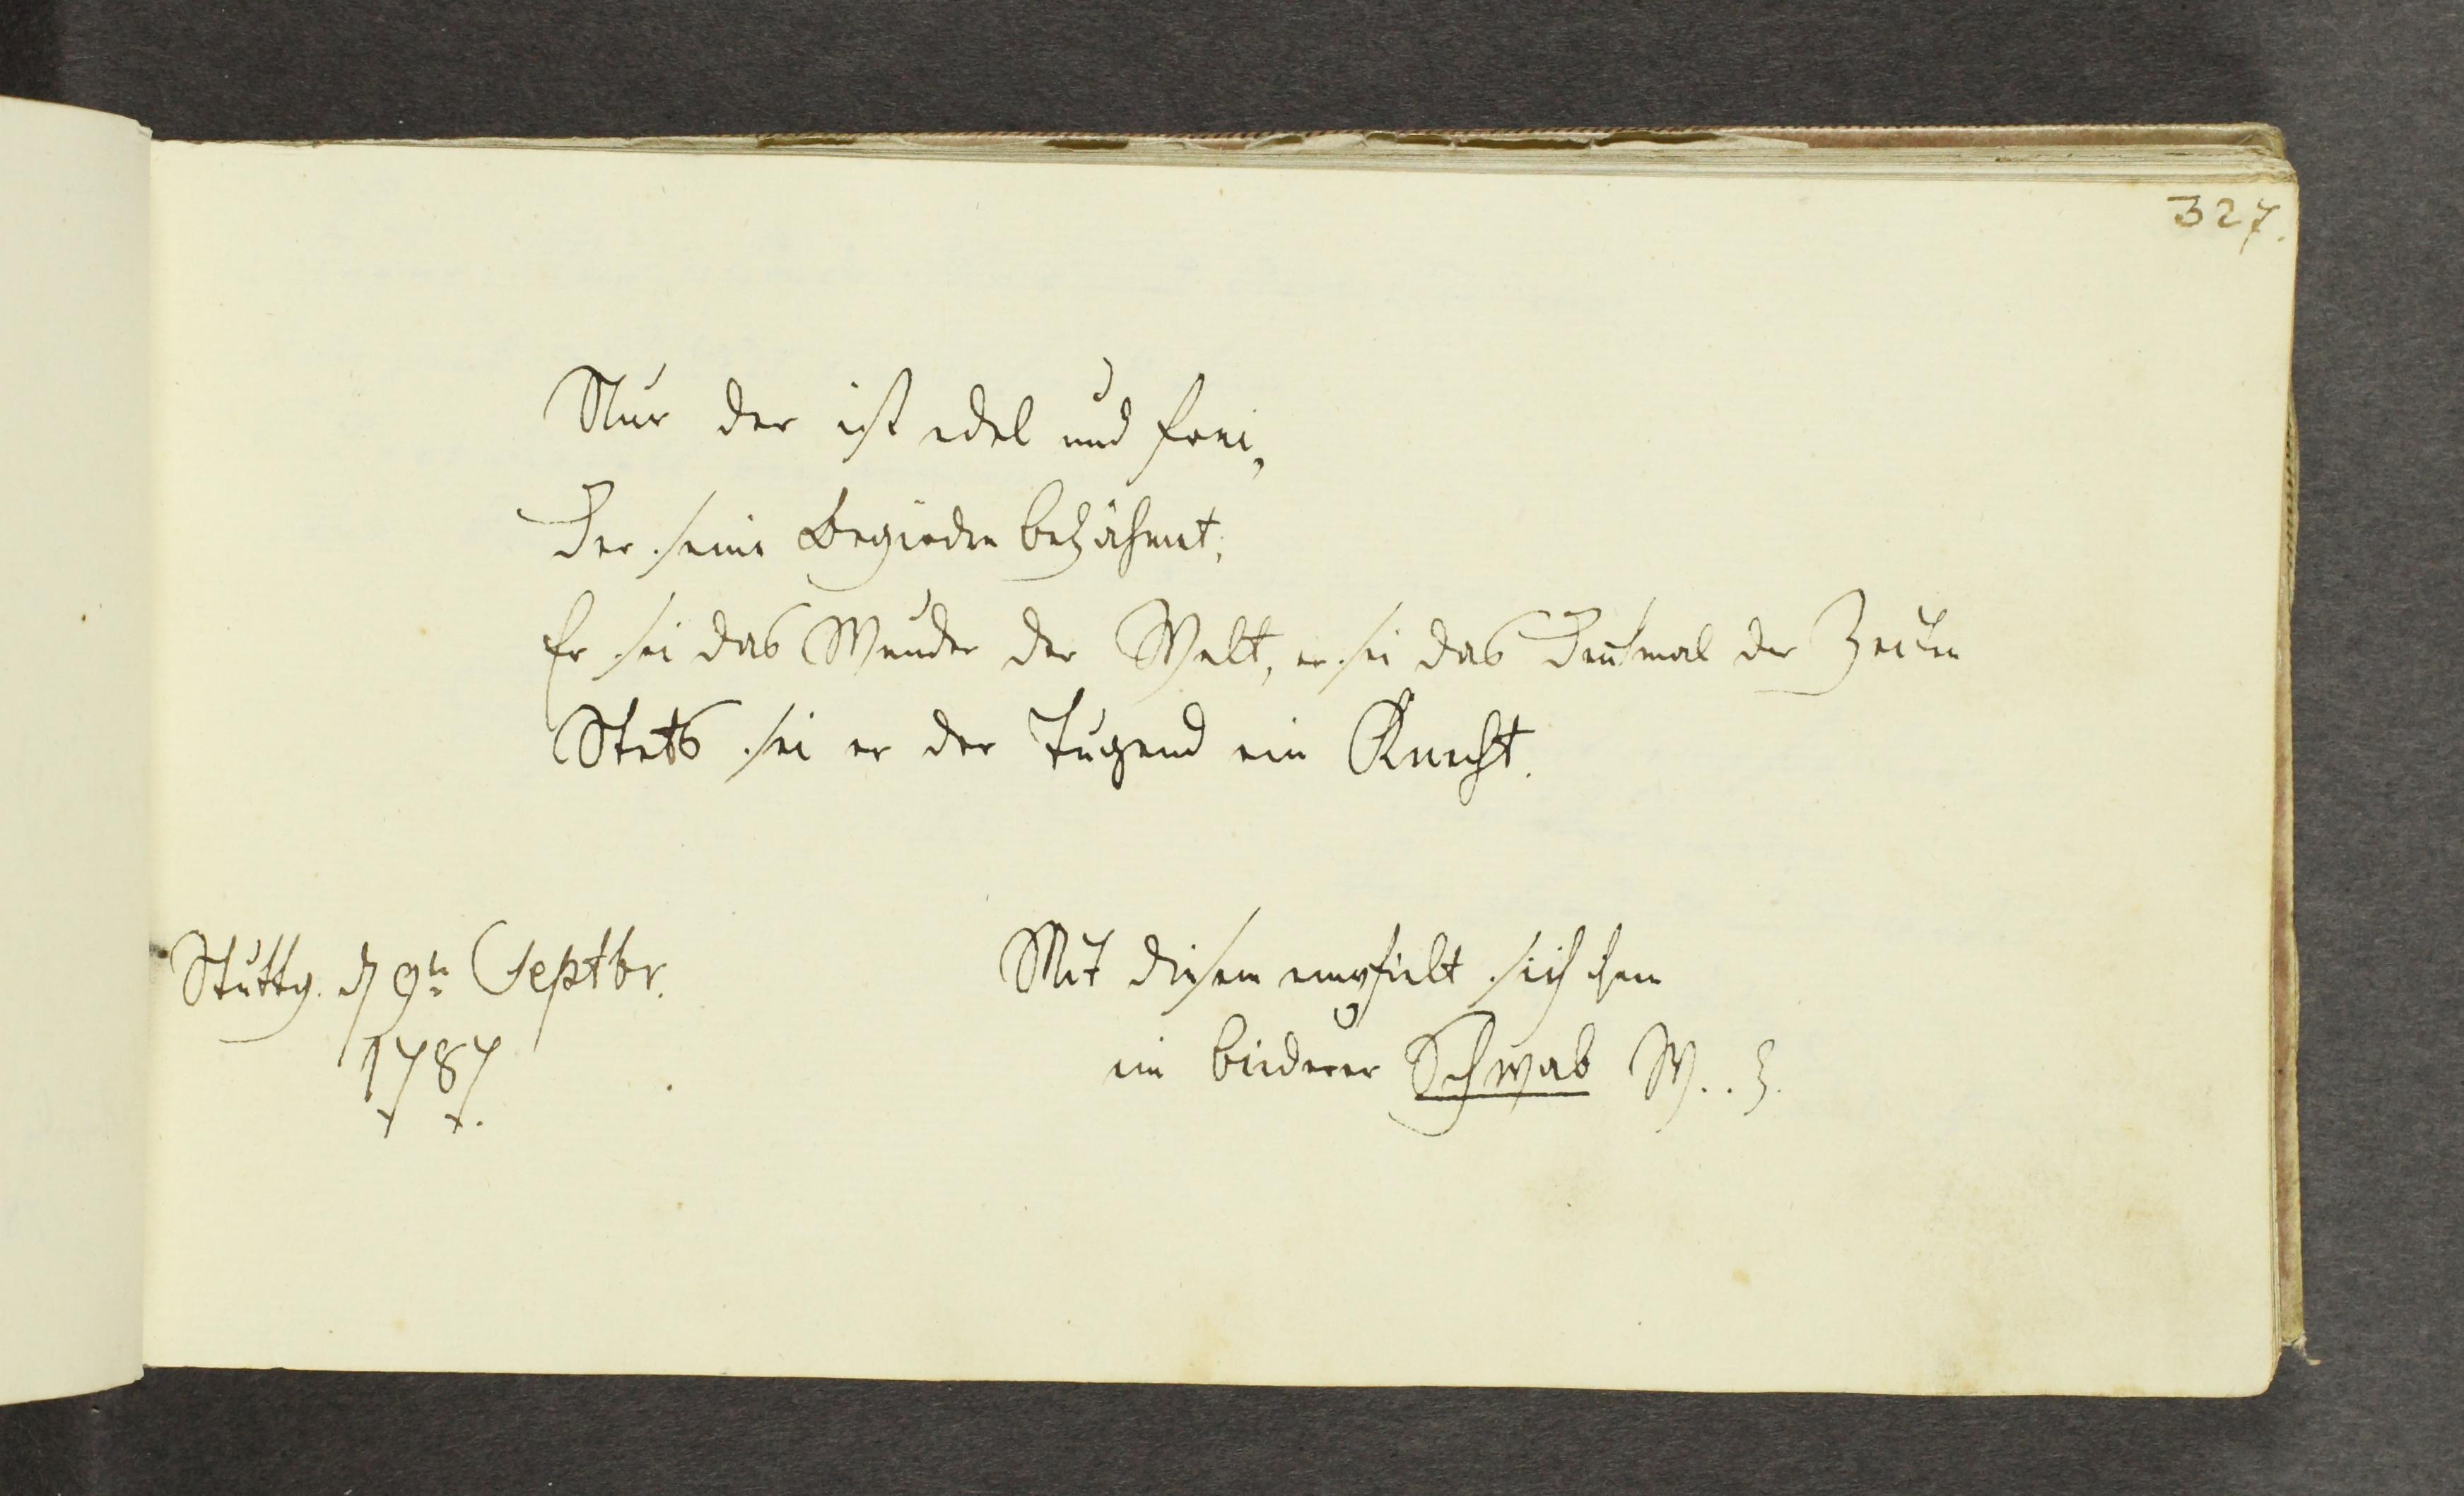 327.
Nur der ist edel und frei,
Der seine Begirden bezähmt;
Er sei das Wunder der Welt, er sei das Denkmal der Zeiten
Stets sei er der Tugend ein Knecht.
Stuttg. d 9te Septbr.
1787
Mit diesem empfielt sich ihm
ein biederer Schwab W...z.